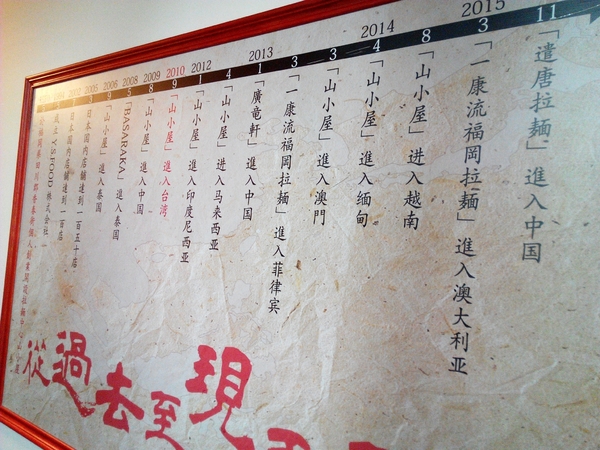 2002
2005
2006
2008
2009
2010
2012
2013
2014
2015
9
5
8
9
1
4
1
3
3
4
8
3
11
成立 Y.S FOOD 株式会社
日本国内店舖達到一百店
日本国内店舖達到一百五十店
「山小屋」進入泰国
「BASARAKA」進入泰国
「山小屋」進入中国
「山小屋」進入台湾
「山小屋」進入印度尼西亚
「山小屋」进入马来西亚
「廣竜軒」進入中国
「一康流福岡拉麺」進入菲律宾
「山小屋」進入澳門
「山小屋」進入缅甸
「山小屋」进入越南
「一康流福岡拉麺」進入澳大利亚
「遣唐拉麺」進入中国
從過去至現